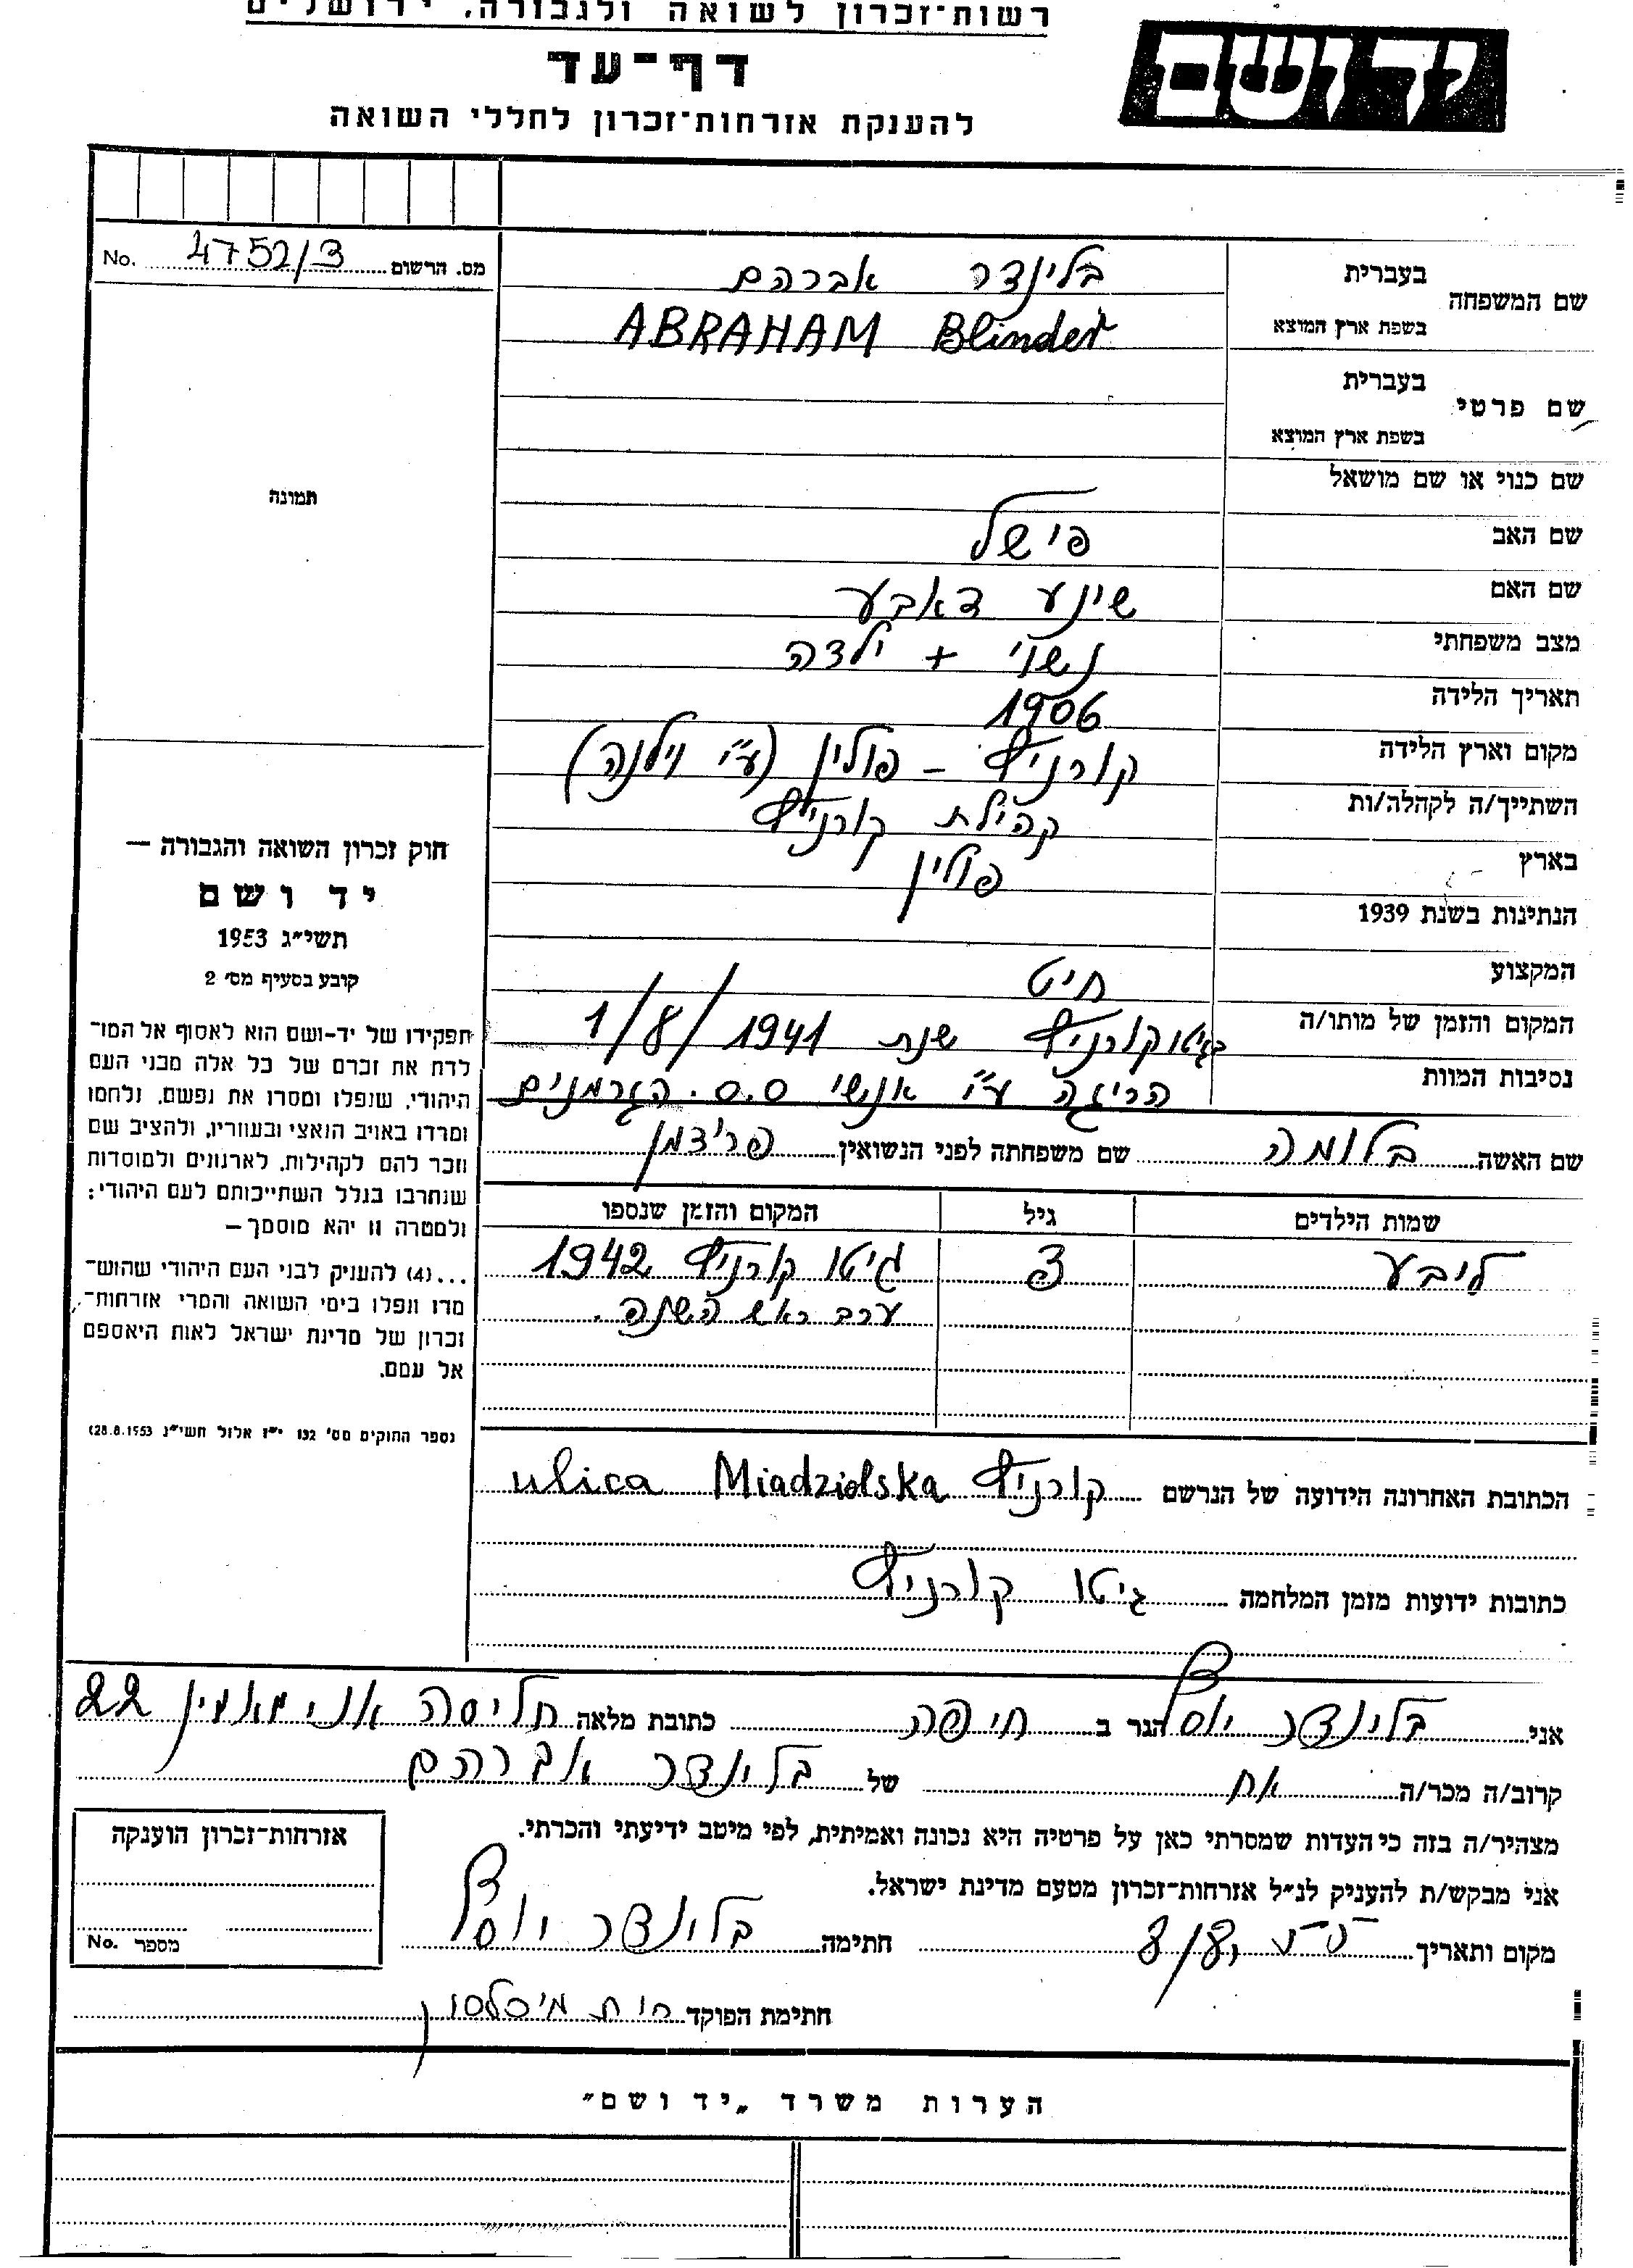 רשות־זכרון לשואה ולגבורה, ירושלים
דף־עד
להענקת אזרחות־זכרון לחללי השואה
יד ושם
מס. הרשום 4752/3 No.
שם המשפחה
בעברית בלינדר אברהם
בשפת ארץ המוצא ABRAHAM Blinder
שם פרטי
בעברית
בשפת ארץ המוצא
שם כנוי או שם מושאל
שם האב פישל
שם האם שינע דאבע
מצב משפחתי נשוי + ילדה
תאריך הלידה 1906
מקום וארץ הלידה קורניץ – פולין (ע"י וילנה)
השתייך/ה לקהלה/ות קהילת קורניץ
בארץ פולין
הנתינות בשנת 1939
המקצוע חיט
המקום והזמן של מותו/ה בגיטו קורניץ שנת 1941 1/8/
נסיבות המוות הריגה ע"י אנשי ס.ס. הגרמנים
שם האשה בלומה שם משפחתה לפני הנשואין פרידמן
שמות הילדים גיל המקום והזמן שנספו
ליבע 3 גיטו קורניץ 1942
ערב ראש השנה.
תמונה
חוק זכרון השואה והגבורה –
יד ושם
תשי״ג 1953
קובע בסעיף מס׳ 2
תפקידו של יד-ושם הוא לאסוף אל המו־
לדת את זכרם של כל אלה מבני העם
היהודי, שנפלו ומסרו את נפשם, נלחמו
ומרדו באויב הנאצי ובעוזריו, ולהציב שם
וזכר להם לקהילות, לארגונים ולמוסדות
שנחרבו בגלל השתייכותם לעם היהודי;
ולמטרה זו יהא מוסמך –
...(4) להעניק לבני העם היהודי שהוש־
מדו ונפלו בימי השואה והמרי אזרחות־
זכרון של מדינת ישראל לאות היאספם
אל עמם.
(ספר החוקים מס׳ 132 י״ז אלול תשי״ג 28.8.1953)
הכתובת האחרונה הידועה של הנרשם קורניץ ulica Miadziolska
כתובות ידועות מזמן המלחמה גיטו קורניץ
אני בלינדר יוסף הגר ב חיפה כתובת מלאה חליסה אני מאמין 22
קרוב/ה מכר/ה אח של בלינדר אברהם
מצהיר/ה בזה כי העדות שמסרתי כאן על פרטיה היא נכונה ואמיתית, לפי מיטב ידיעתי והכרתי.
אני מבקש/ת להעניק לנ״ל אזרחות־זכרון מטעם מדינת ישראל.
מקום ותאריך חתימה בלינדר יוסף
אזרחות־זכרון הוענקה
מספר No.
חתימת הפוקד
הערות משרד „יד ושם״